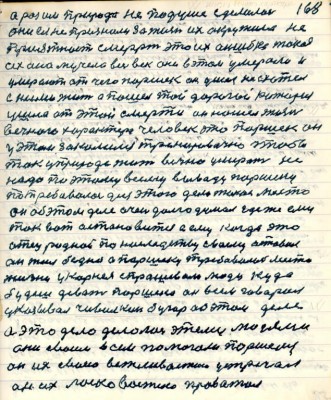 168
а розиш природа не подушке сделалась
они ее не признали за жизнь их окружила не
приятност смерт это их ошибка такая
их она мучела век они в этом умерали и
умерают от чего паршек он ушел не хотел
с ними жит а пошел этой дорогой которая
ушла от этой смерти он нашел жизн
вечного характера человек это паршек он
у этом закалился тренировачно чтобы
так у природе жит вечно умират не
надо по этому всему выводу паршеку
потребовалос для этого дела такая место
он об этом деле очен долго думал где же ему
так вот остановится а ему когда это
отец родной по наследству своему оставил
он жил бедно а паршеку требовалос место
жизни у корнея спрашевали люди куда
будеш деват паршека он всем говорил
указывал чивилкин бугор об этом деле
а это дело делолос этими людями
они своим всем помогали паршеку
он их своею вежливостю устречал
он их легко важно проважал